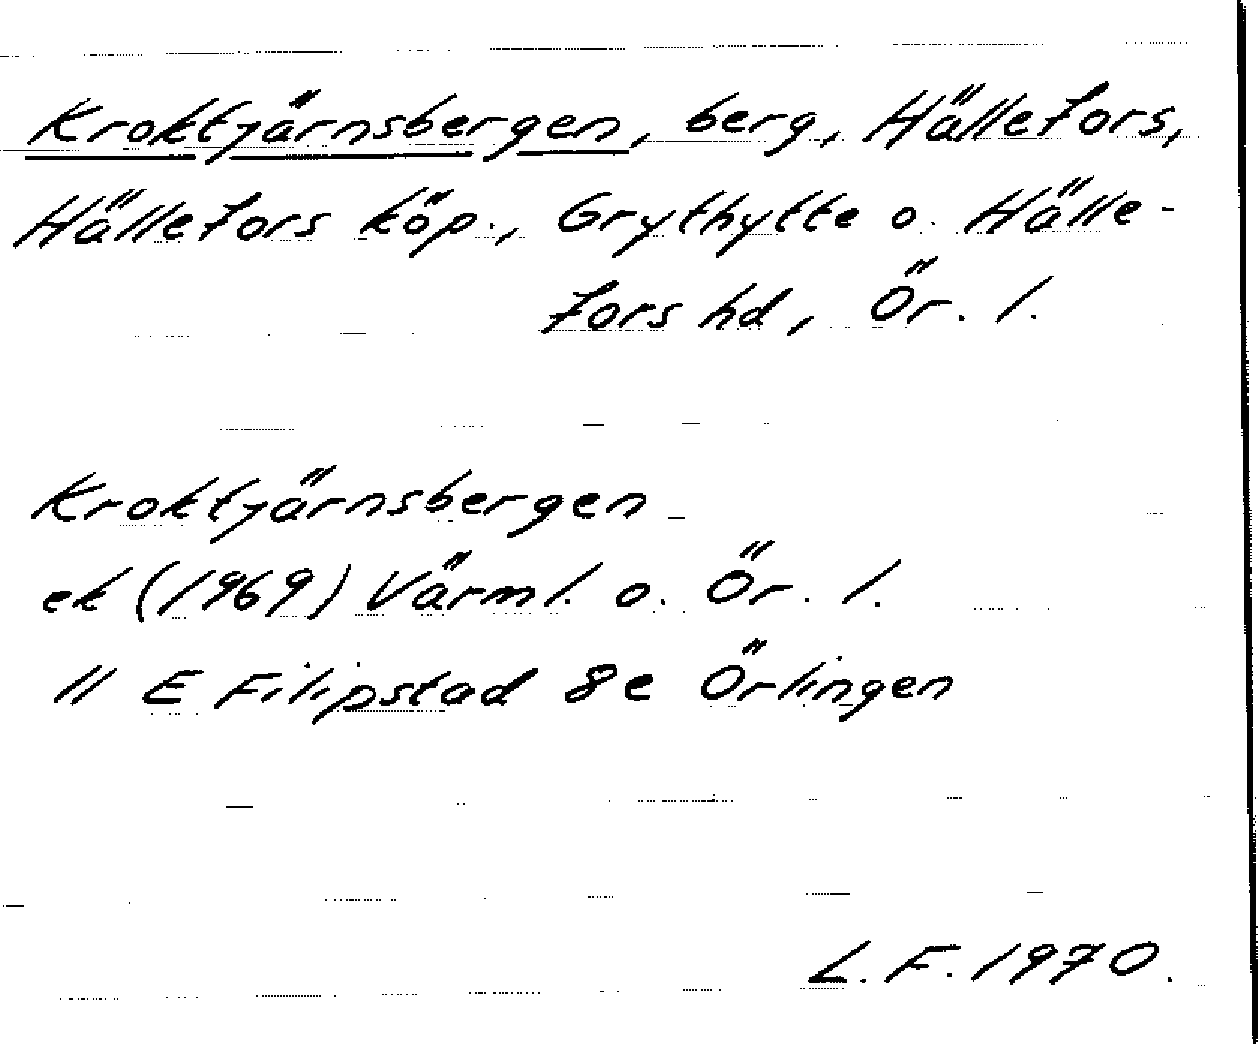 Kroktjärnsbergen, berg, Hällefors,
Hällefors köp., Grythytte o. Hälle-
fors hd, Ör. l.
Kroktjärnsbergen
ek (1969) Värml. o. Ör. l.
11 E Filipstad 8e Örlingen
L. F. 1970.